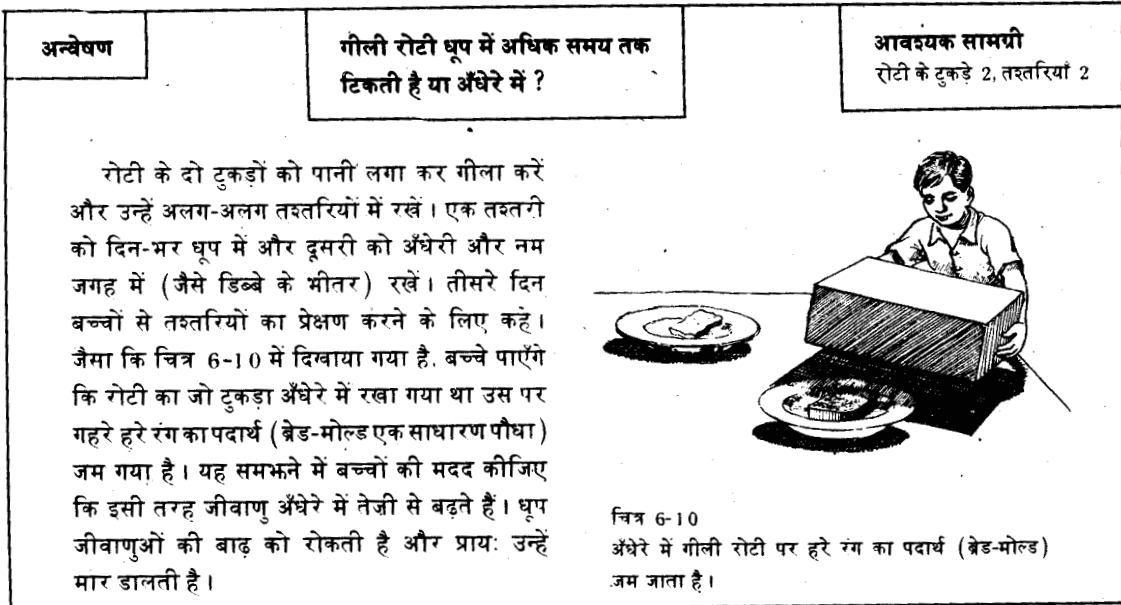 अन्वेषण
गीली रोटी धूप में अधिक समय तक
टिकती है या अँधेरे में ?
आवश्यक सामग्री
रोटी के टुकड़े 2, तश्तरियाँ 2
रोटी के दो टुकड़ों को पानी लगा कर गीला करें
और उन्हें अलग-अलग तश्तरियों में रखें । एक तश्तरी
को दिन-भर धूप में और दूसरी को अँधेरी और नम
जगह में (जैसे डिब्बे के भीतर) रखें । तीसरे दिन
बच्चों से तश्तरियों का प्रेक्षण करने के लिए कहें ।
जैसा कि चित्र 6-10 में दिखाया गया है, बच्चे पाएँगे
कि रोटी का जो टुकड़ा अँधेरे में रखा गया था उस पर
गहरे हरे रंग का पदार्थ (ब्रेड-मोल्ड एक साधारण पौधा)
जम गया है । यह समझने में बच्चों की मदद कीजिए
कि इसी तरह जीवाणु अँधेरे में तेज़ी से बढ़ते हैं । धूप
जीवाणुओं की बाढ़ को रोकती है और प्रायः उन्हें
मार डालती है ।
चित्र 6-10
अँधेरे में गीली रोटी पर हरे रंग का पदार्थ (ब्रेड-मोल्ड)
जम जाता है ।